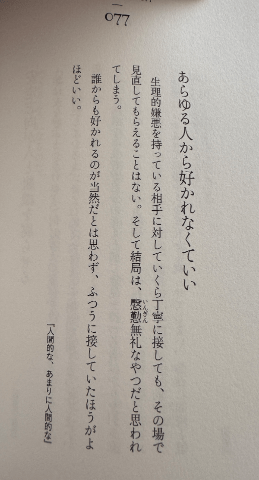 077
あらゆる人から好かれなくていい
生理的嫌悪を持っている相手に対していくら丁寧に接しても、その場で
見直してもらえることはない。そして結局は、慇懃無礼なやつだと思われ
てしまう。
誰からも好かれるのが当然だとは思わず、ふつうに接していたほうがよ
ほどいい。
『人間的な、あまりに人間的な』